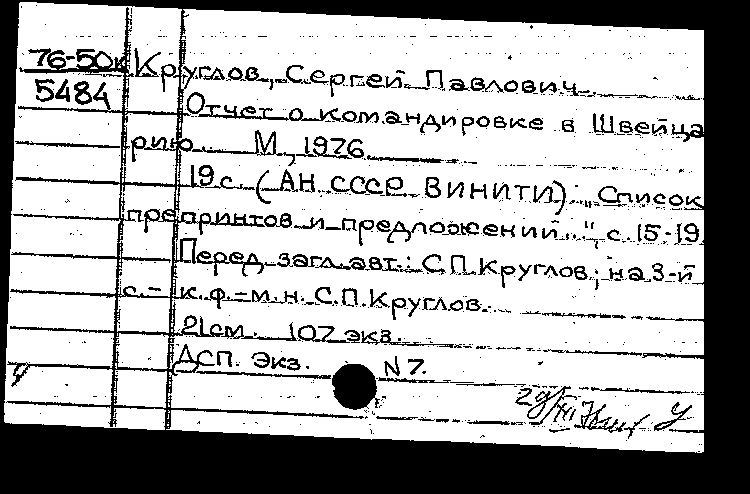 76-50к Круглов, Сергей Павлович.
5484 Отчет о командировке в Швейца
рию. М., 1976.
19 с. (АН СССР. ВИНИТИ). "Список
препринтов и предложений...", с. 15-19.
Перед загл. авт.: С.П. Круглов; на 3-й
с. - к. ф.-м. н. С.П. Круглов.
21 см. 107 экз.
ДСП. Экз. N 7.